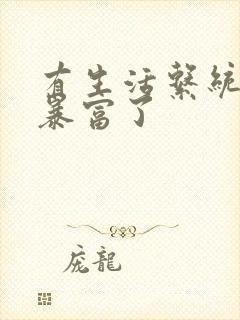 有生活繫統
暴富了
庞龍